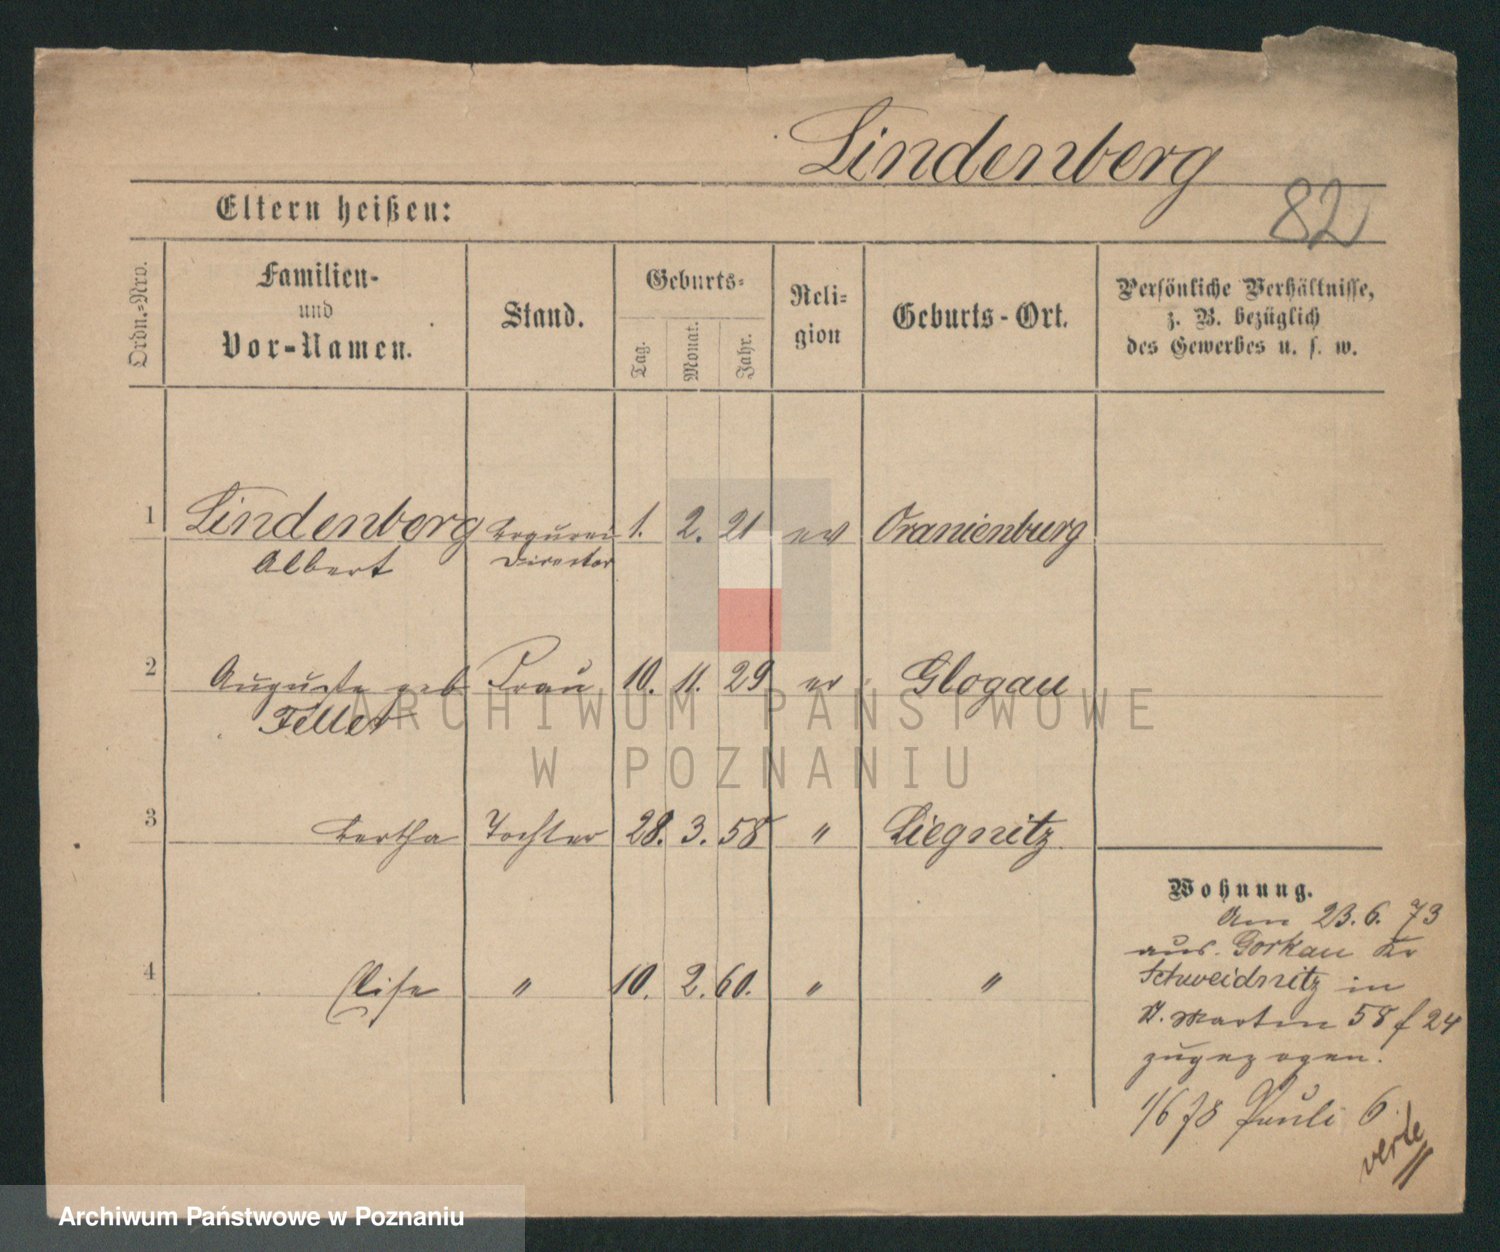 Lindenberg
82
Eltern heißen:
Ordn.-Nro.
Familien-
und
Vor-Namen.
Stand.
Geburts-
Tag.
Monat.
Jahr.
Reli-
gion
Geburts-Ort.
Persönliche Verhältnisse,
z. B. bezüglich
des Gewerbes u. s. w.
1 Lindenberg 1. 2. 21 ev Oranienburg
Albert Director
2 Auguste geb Frau 10. 11. 29 ev Glogau
Feller
ARCHIWUM PAŃSTWOWE
W POZNANIU
3 Bertha Tochter 28. 3. 58 " Liegnitz
Wohnung.
Am 23.6.73
aus Gorkau Kr
4 Elise " 10. 2. 60. " "
Schweidnitz in
St. Martin 58 f 24
zugezogen.
1/6 78 Pauli 6
verte
Archiwum Państwowe w Poznaniu